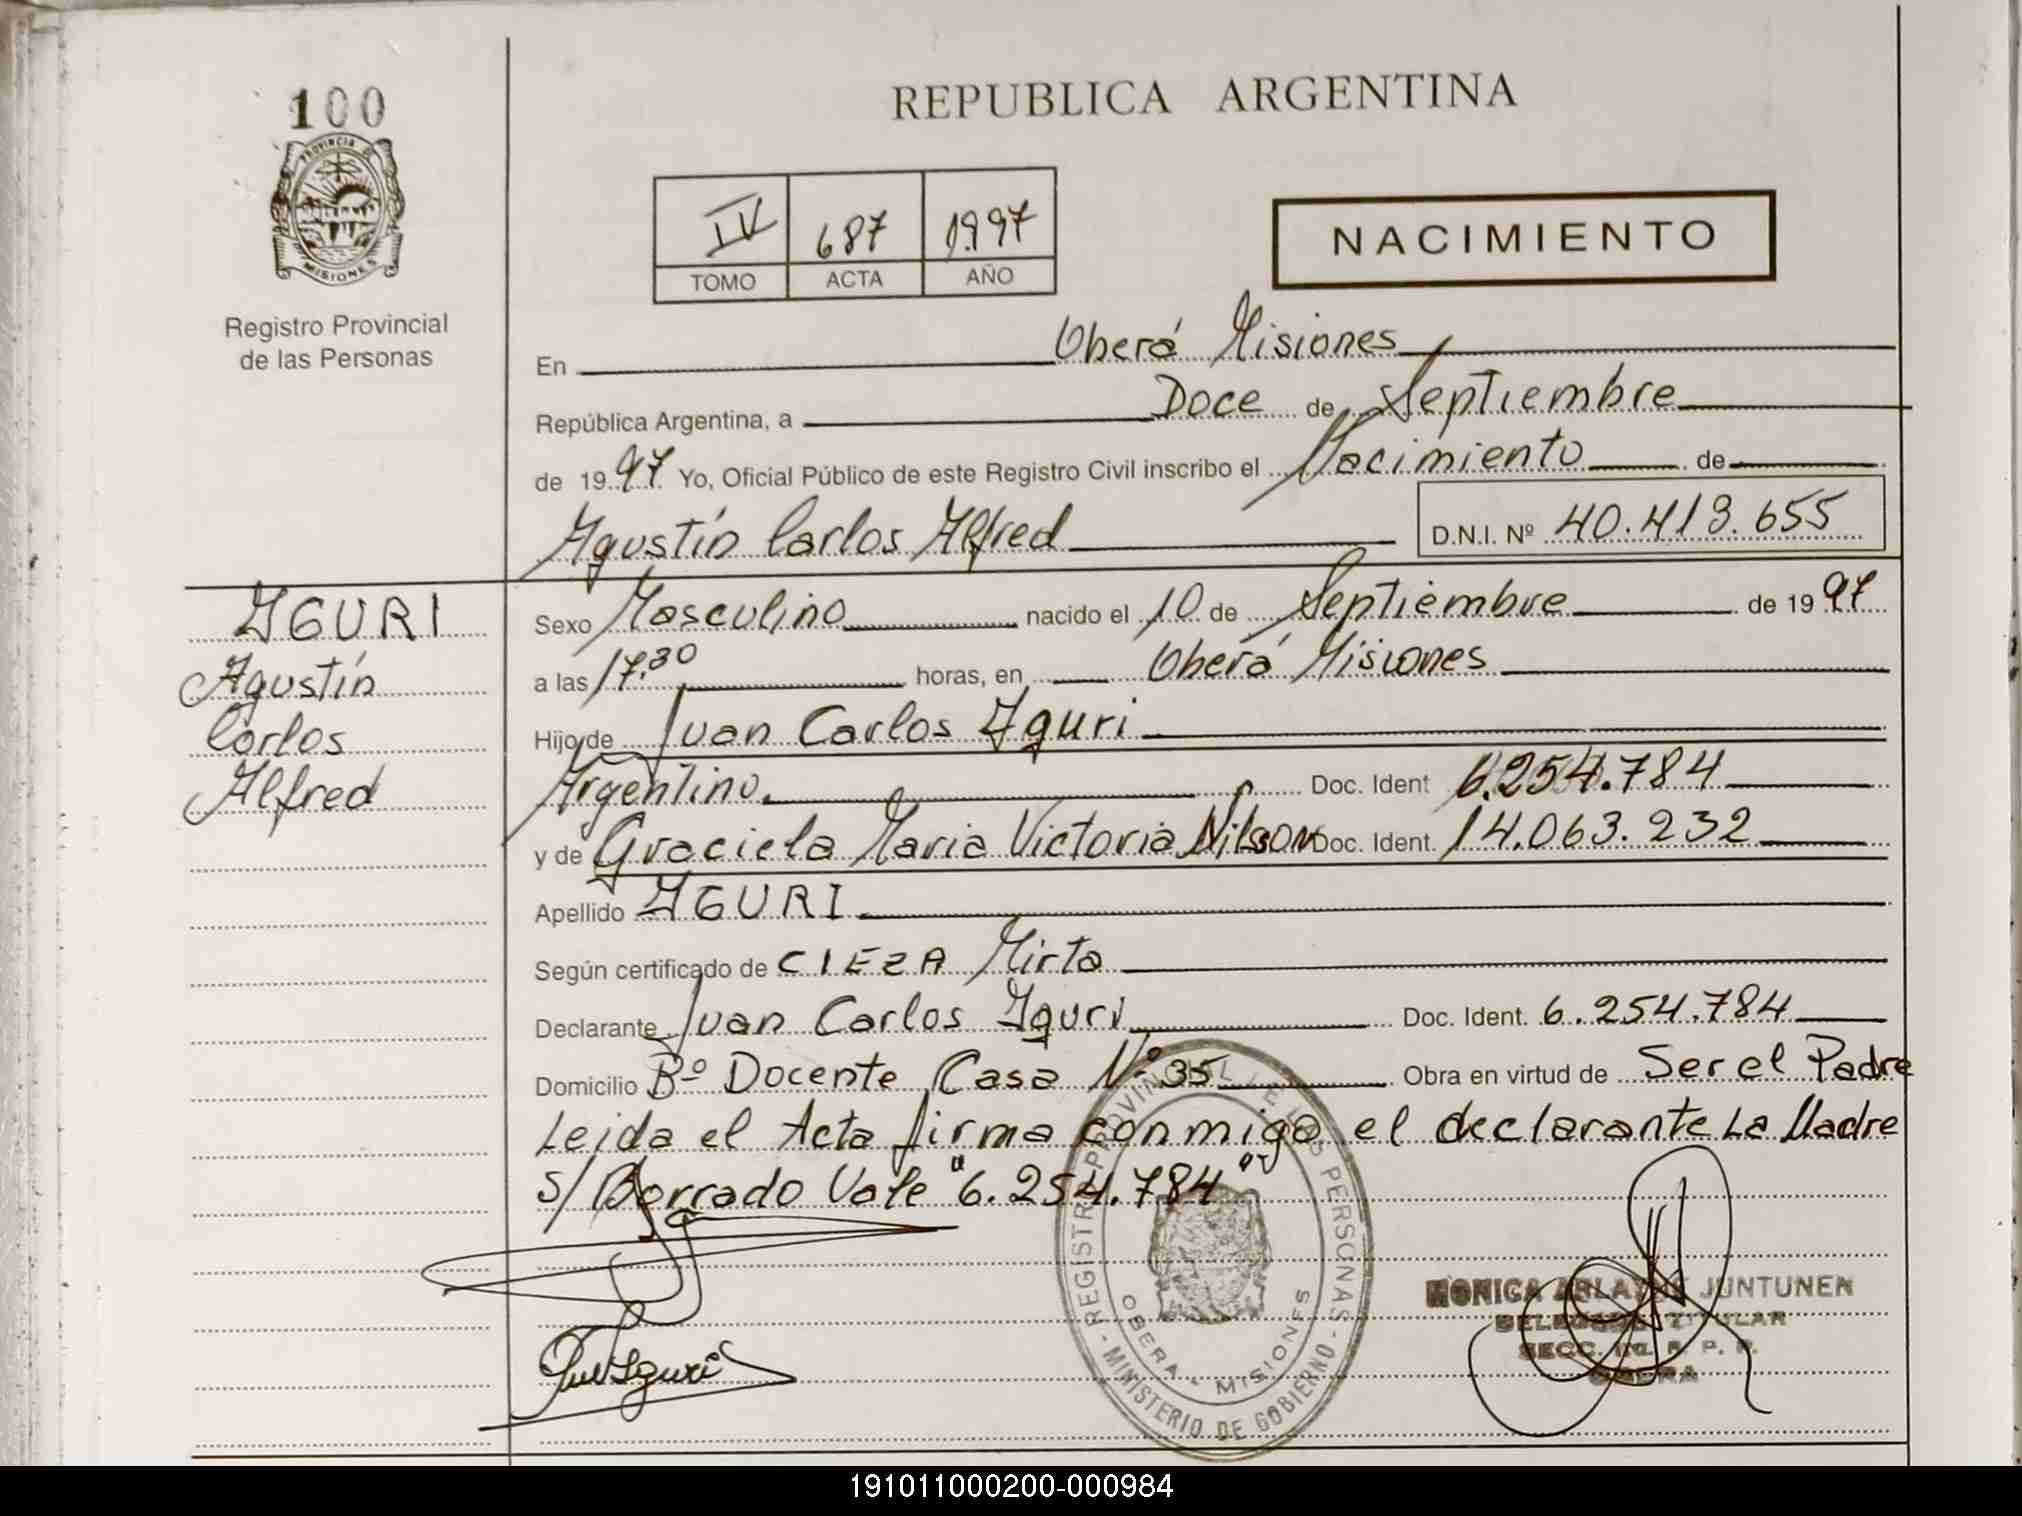 100
PROVINCIA DE
MISIONES
Registro Provincial
de las Personas
REPUBLICA ARGENTINA
IV 687 1997
TOMO ACTA AÑO
NACIMIENTO
En Oberá Misiones
República Argentina, a Doce de Septiembre
de 1997 Yo, Oficial Público de este Registro Civil inscribo el Nacimiento de
Agustín Carlos Alfred D.N.I. Nº 40.413.655
AGURI
Agustín
Carlos
Alfred
Sexo Masculino nacido el 10 de Septiembre de 1997
a las 17.30 horas, en Oberá Misiones
Hijo de Juan Carlos Aguri
Argentino. Doc. Ident 6.254.784
y de Graciela Maria Victoria Nilsson Doc. Ident. 14.063.232
Apellido AGURI
Según certificado de CIEZA Mirta
Declarante Juan Carlos Aguri Doc. Ident. 6.254.784
Domicilio Bº Docente Casa Nº 35 Obra en virtud de Ser el Padre
Leida el Acta firma conmigo el declarante La Madre
S/ Borrado Vale "6.254.784"
REGISTRO PROVINCIAL DE LAS PERSONAS
OBERA - MISIONES
MINISTERIO DE GOBIERNO
MONICA JUNTUNEN
TITULAR
SECC. R. P. P.
OBERA
191011000200-000984